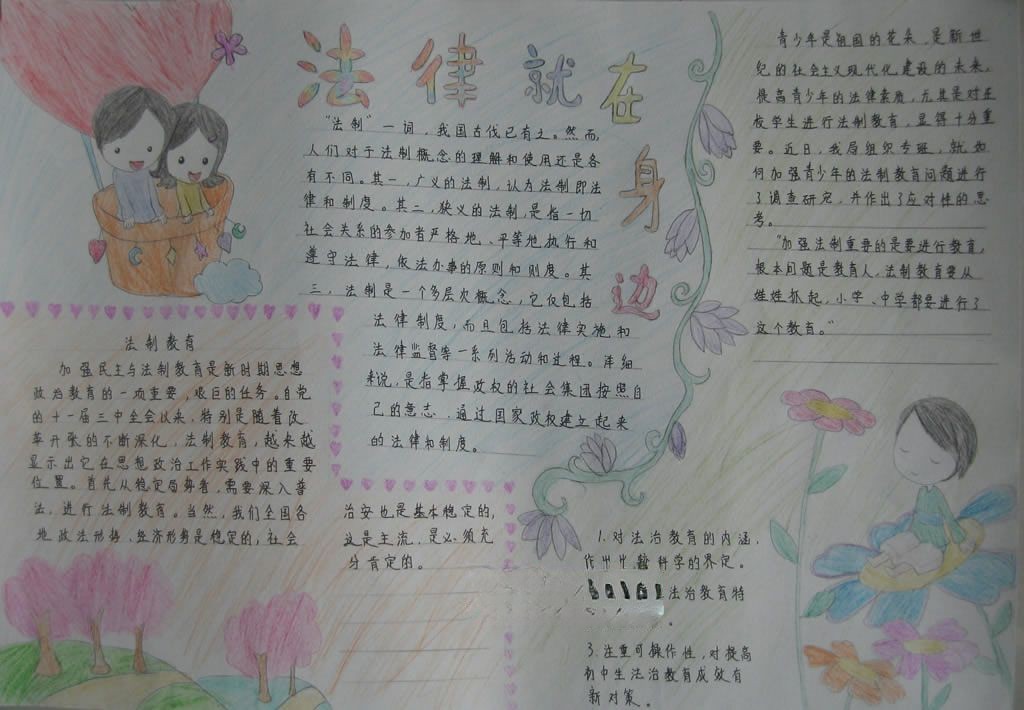 法律就在身边
"法制"一词，我国古代已有之。然而，
人们对于法制概念的理解和使用还是各
有不同。其一，广义的法制，认为法制即法
律和制度。其二，狭义的法制，是指一切
社会关系的参加者严格地、平等地执行和
遵守法律，依法办事的原则和制度。其
三，法制是一个多层次概念，它仅包括
法律制度，而且包括法律实施和
法律监督等一系列活动和过程。详细
来说，是指掌握政权的社会集团按照自
己的意志，通过国家政权建立起来
的法律和制度。
法制教育
加强民主与法制教育是新时期思想
政治教育的一项重要，艰巨的任务。自党
的十一届三中全会以来，特别是随着改
革开放的不断深化，法制教育，越来越
显示出它在思想政治工作实践中的重要
位置。首先从稳定局势看，需要深入普
法，进行法制教育。当然，我们全国各
地政法形势、经济形势是稳定的，社会
治安也是基本稳定的，
这是主流，是必须充
分肯定的。
青少年是祖国的花朵，是新世
纪的社会主义现代化建设的未来，
提高青少年的法律素质，尤其是对在
校学生进行法制教育，显得十分重
要。近日，我局组织专班，就如
何加强青少年的法制教育问题进行
了调查研究，并作出了应对性的思
考。
"加强法制重要的是要进行教育，
根本问题是教育人，法制教育要从
娃娃抓起，小学、中学都要进行了
这个教育。"
1.对法治教育的内涵，
作 科学的界定。
法治教育特
。
3.注重可操作性，对提高
初中生法治教育成效有
新对策。